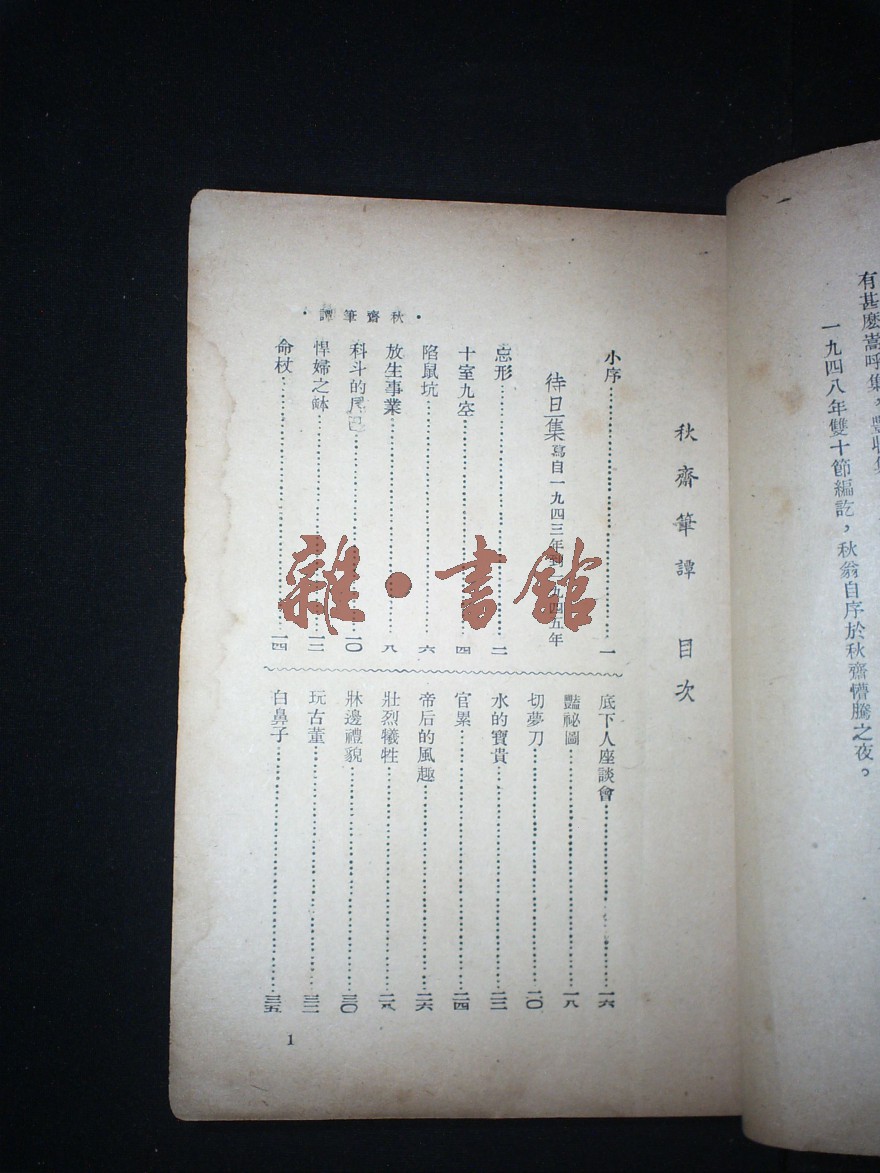 有甚麼嵩呼集，豐收集
一九四八年雙十節編訖，秋翁自序於秋齋懵騰之夜。
秋齋筆譚 目次
小序 一
待旦集 寫自一九四三年到一九四五年
忘形 二
十室九空 四
陷鼠坑 六
放生事業 八
科斗的尾巴 一〇
悍婦之缽 一二
命杖 一四
底下人座談會 一六
豔祕圖 一八
切夢刀 二〇
水的寶貴 二二
官累 二四
帝后的風趣 二六
壯烈犧牲 二八
牀邊禮貌 三〇
玩古董 三二
白鼻子 三五
•秋齋筆譚•
1
雜•書館